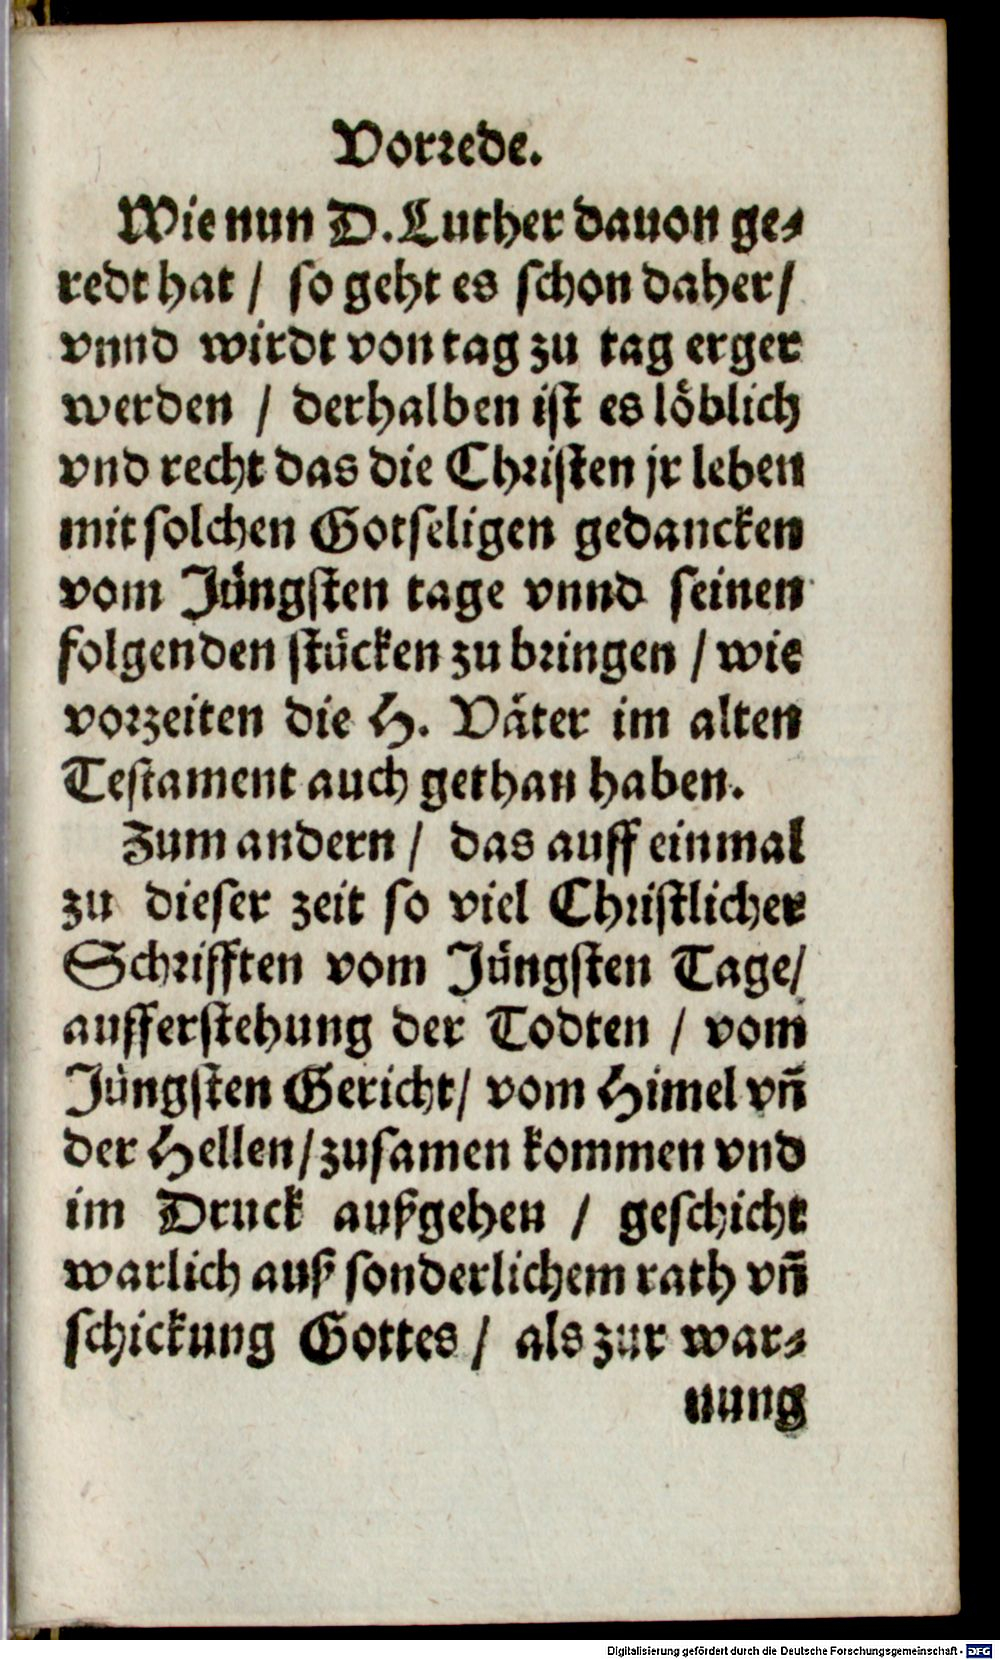 Vorrede.
Wie nun D. Luther dauon ge-
redt hat / so geht es schon daher /
vnnd wirdt von tag zu tag erger
werden / derhalben ist es löblich
vnd recht das die Christen jr leben
mit solchen Gotseligen gedancken
vom Jüngsten tage vnnd seinen
folgenden stücken zu bringen / wie
vorzeiten die H. Väter im alten
Testament auch gethan haben.
Zum andern / das auff einmal
zu dieser zeit so viel Christlicher
Schrifften vom Jüngsten Tage /
aufferstehung der Todten / vom
Jüngsten Gericht / vom Himel vñ
der Hellen / zusamen kommen vnd
im Druck außgehen / geschicht
warlich auß sonderlichem rath vñ
schickung Gottes / als zur war-
nung
Digitalisierung gefördert durch die Deutsche Forschungsgemeinschaft - DFG